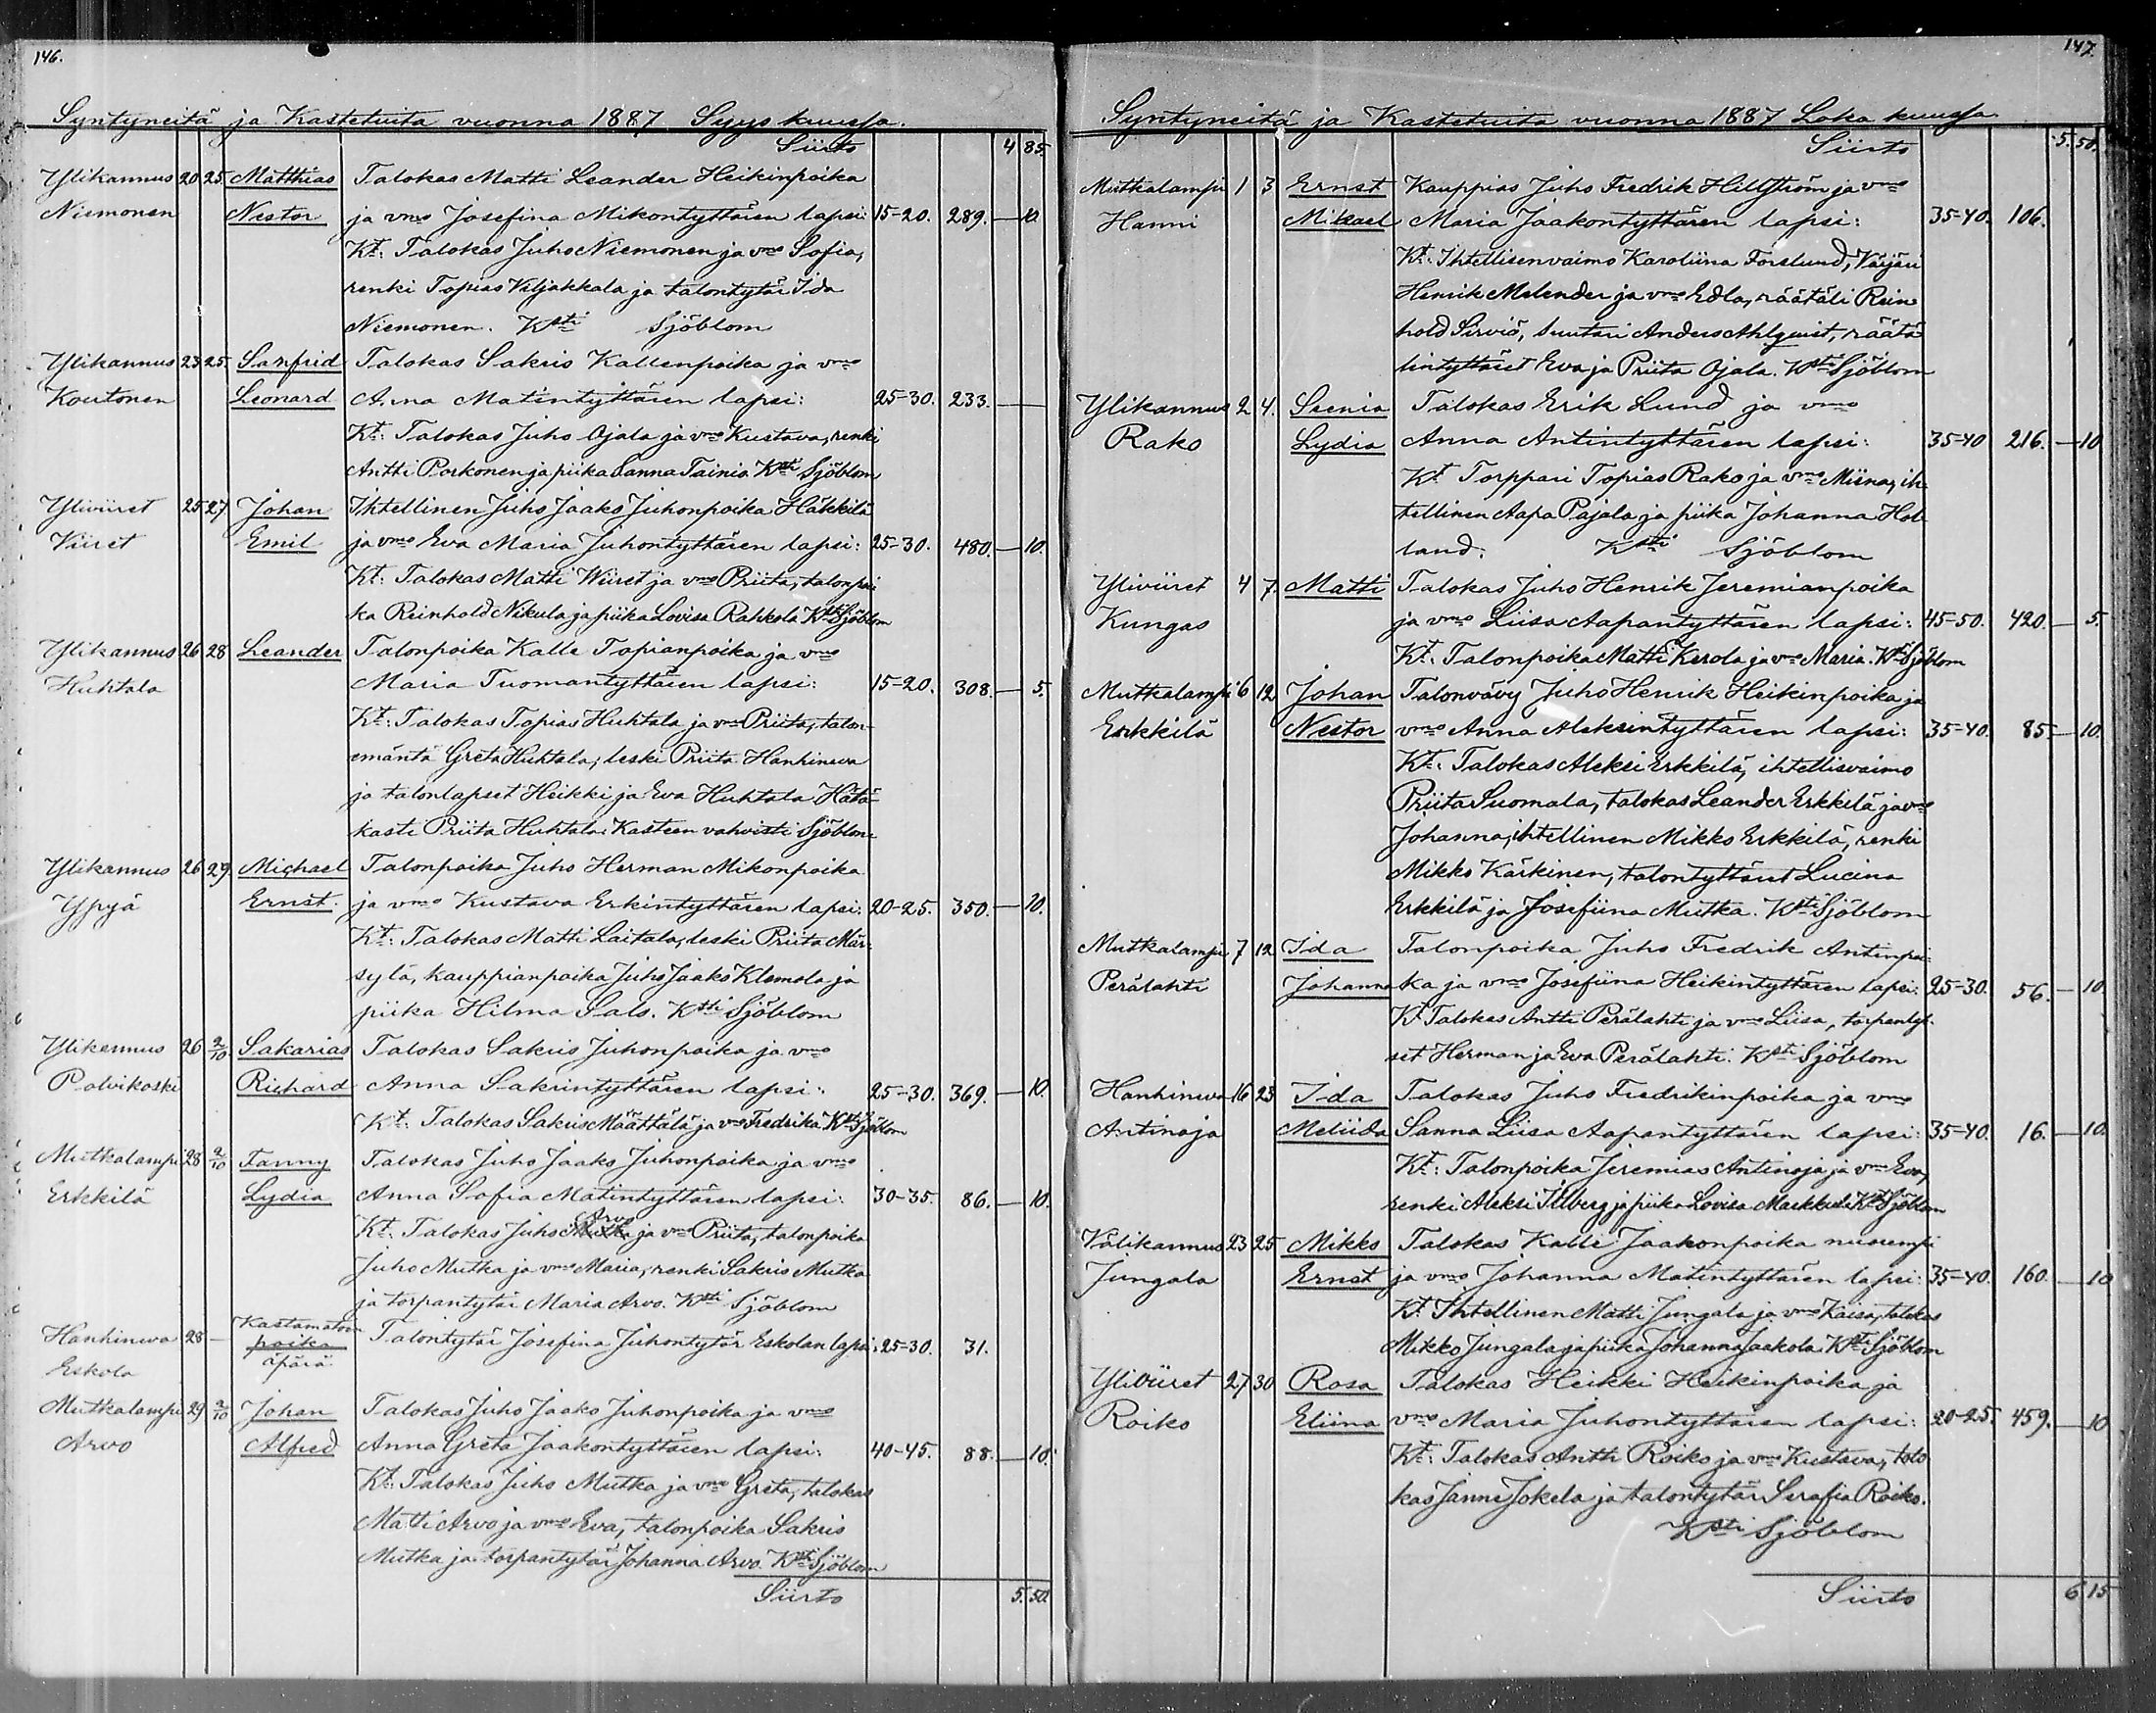 146.
Syntyneitä ja Kastetuita vuonna 1887 Syyskuussa.
Siirto 4 85.
Ylikannus 20 25. Matthias Talokas Matti Leander Heikinpoika
Niemonen Nestor ja vmo Josefina Mikontyttären lapsi: 15-20. 289. — 10.
Kt: Talokas Juho Niemonen ja vmo Sofia,
renki Topias Viljakkala ja talontytär Ida
Niemonen. Ksti Sjöblom
Ylikannus 23 25. Sanfrid Talokas Sakris Kallenpoika ja vmo
Koutonen Leonard Anna Matintyttären lapsi: 25-30. 233. —
Kt: Talokas Juho Ojala ja vmo Kustava, renki
Antti Porkonen ja piika Sanna Tainio. Ksti Sjöblom
Yliviiret 25 27 Johan Ihtellinen Juho Jaako Juhonpoika Häkkilä
Viiret Emil ja vmo Eva Maria Juhontyttären lapsi: 25-30. 480. — 10.
Kt: Talokas Matti Wiiret ja vmo Priita, talonpoi
ka Reinhold Nikula ja piika Lovisa Rahkola Ksti Sjöblom
Ylikannus 26 28 Leander Talonpoika Kalle Topianpoika ja vmo
Huhtala Maria Tuomantyttären lapsi: 15-20. 308. — 5.
Kt: Talokas Topias Huhtala ja vmo Priita, talon-
emäntä Greta Huhtala, leski Priita Hanhineva
ja talonlapset Heikki ja Eva Huhtala Hätä-
kasti Priita Huhtala. Kasteen vahvisti Sjöblom
Ylikannus 26 29 Michael Talonpoika Juho Herman Mikonpoika
Yppyä Ernst. ja vmo Kustava Erkintyttären lapsi: 20-25. 350. — 10.
Kt: Talokas Matti Laitala, leski Priita Mär-
sylä, kauppianpoika Juho Jaako Klemola ja
piika Hilma Salo. Ksti Sjöblom
Ylikannus 26 2/10. Sakarias Talokas Sakris Juhonpoika ja vmo
Polvikoski Richard Anna Sakrintyttären lapsi: 25-30. 369. — 10.
Kt: Talokas Sakris Määttälä ja vmo Fredrika. Ksti Sjöblom
Mutkalampi 28 2/10 Fanny Talokas Juho Jaako Juhonpoika ja vmo
Erkkilä Lydia Anna Sofia Matintyttären lapsi: 30-35. 86. — 10.
Kt: Talokas Juho Arvo ja vmo Priita, talonpoika
Juho Mutka ja vmo Maria, renki Sakris Mutka
ja torpantytär Maria Arvo. Ksti Sjöblom
Hanhineva 28 — Kastamatoin poika Talontytär Josefina Juhontytär Eskolan lapsi: 25-30. 31.
Eskola äpärä
Mutkalampi 29 2/10 Johan Talokas Juho Jaako Juhonpoika ja vmo
Arvo Alfred Anna Greta Jaakontyttären lapsi: 40-45. 88. — 10.
Kt: Talokas Juho Mutka ja vmo Greta, talokas
Matti Arvo ja vmo Eva, talonpoika Sakris
Mutka ja torpantytär Johanna Arvo. Ksti Sjöblom
Siirto 5. 50.
147.
Syntyneitä ja Kastetuita vuonna 1887 Loka kuussa
Siirto 5. 50.
Mutkalampi 1 3 Ernst Kauppias Juho Fredrik Hillström ja vmo
Hanni Mikael Maria Jaakontyttären lapsi: 35-40. 106.
Kt: Ihtellisenvaimo Karoliina Forslund, Värjäri
Henrik Melender ja vmo Edla, räätäli Rein
hold Sirviö, suutari Anders Ahlqvist, räätä
lintyttäret Eva ja Priita Ojala. Ksti Sjöblom
Ylikannus 2 4. Senia Talokas Erik Lund ja vmo
Rako Lydia Anna Antintyttären lapsi: 35-40 216. — 10
Kt Torppari Topias Rako ja vmo Miina, ih-
tellinen Aapa Pajala ja piika Johanna Hol-
land. Ksti Sjöblom
Yliviiret 4 7. Matti Talokas Juho Henrik Jeremianpoika
Kungas ja vmo Liisa Aapantyttären lapsi: 45-50. 420. — 5.
Kt: Talonpoika Matti Kerola ja vmo Maria. Ksti Sjöblom
Mutkalampi 6 12 Johan Talonvävy Juho Henrik Heikinpoika ja
Erkkilä Nestor vmo Anna Aleksintyttären lapsi: 35-40. 85. — 10.
Kt: Talokas Aleksi Erkkilä, ihtellisvaimo
Priita Suomala, talokas Leander Erkkilä ja vmo
Johanna, ihtellinen Mikko Erkkilä, renki
Mikko Kärkinen, talontyttäret Lucina
Erkkilä ja Josefiina Mutka. Ksti Sjöblom
Mutkalampi 7 12 Ida Talonpoika Juho Fredrik Antinpoi-
Perälahti Johanna ka ja vmo Josefiina Heikintyttären lapsi: 25-30. 56. — 10.
Kt Talokas Antti Perälahti ja vmo Liisa, torpanlap-
set Herman ja Eva Perälahti. Ksti Sjöblom
Hanhineva 16 23 Ida Talokas Juho Fredrikinpoika ja vmo
Antinoja Meliida Sanna Liisa Aapantyttären lapsi: 35-40. 16. — 10.
Kt: Talonpoika Jeremias Antinoja ja vmo Eva,
renki Aleksi Illberg ja piika Lovisa Markkula Ksti Sjöblom
Välikannus 23 25 Mikko Talokas Kalle Jaakonpoika nuorempi
Jungala Ernst ja vmo Johanna Matintyttären lapsi: 35-40. 160. — 10
Kt. Ihtellinen Matti Jungala ja vmo Kaisa, talokas
Mikko Jungala ja piika Johanna Jaakola Ksti Sjöblom
Yliviiret 27 30 Rosa Talokas Heikki Heikinpoika ja
Roiko Eliina vmo Maria Juhontyttären lapsi: 20-25. 459. — 10
Kt: Talokas Antti Roiko ja vmo Kustava, talo
kas Janne Jokela ja talontytär Serafia Roiko.
Ksti Sjöblom
Siirto 6 15